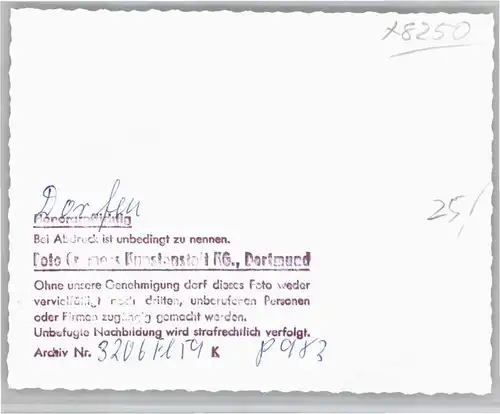 x8250
Dorfen
Honorarpflichtig
25,-
Bei Abdruck ist unbedingt zu nennen.
Foto Cramers Kunstanstalt KG., Dortmund
Ohne unsere Genehmigung darf dieses Foto weder
vervielfältigt noch dritten, unberufenen Personen
oder Firmen zugängig gemacht werden.
Unbefugte Nachbildung wird strafrechtlich verfolgt.
Archiv Nr. K P 983